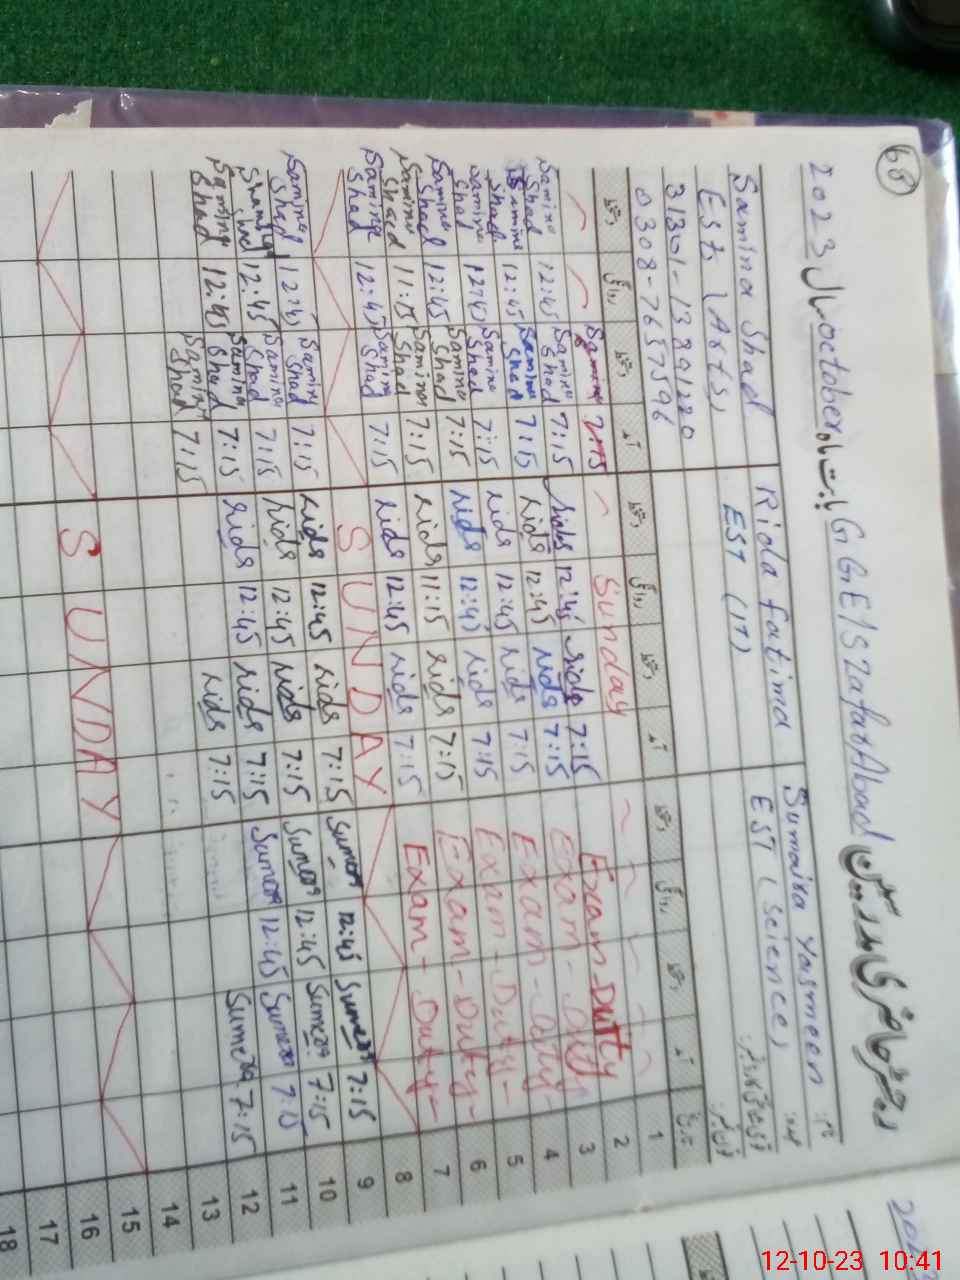 68
2023 سال october بابت ماہ GGE/S Zafar Abad رجسٹر حاضری مدرسین
Samina Shad
Rida fatima
Sumaira Yasmeen
نام
EST (Arts)
EST (IT)
EST (Science)
عہدہ
0308-7657596
دستخط
دستخط
آمد
دستخط
دستخط
آمد
دستخط
دستخط
آمد
تاریخ
1
Sunday
Samina 7:15
Exam-Dutty
2
Samina Shad 12:45 Samina Shad 7:15 Rida 12:45 Rida 7:15 Exam-Duty 3
Samina Shad 12:45 Samina Shad 7:15 Rida 12:45 Rida 7:15 Exam-Duty- 4
Samina Shad 12:45 Samina Shad 7:15 Rida 12:45 Rida 7:15 Exam-Duty- 5
Samina Shad 12:45 Samina Shad 7:15 Rida 12:45 Rida 7:15 Exam-Duty- 6
Samina Shad 11:15 Samina Shad 7:15 Rida 11:15 Rida 7:15 Exam-Duty- 7
Samina Shad 12:45 Samina Shad 7:15 Rida 12:45 Rida 7:15 8
SUNDAY 9
Samina Shad 12:45 Samina Shad 7:15 Rida 12:45 Rida 7:15 Sumera 12:45 Sumera 7:15 10
Samina Shad 12:45 Samina Shad 7:15 Rida 12:45 Rida 7:15 Sumera 12:45 Sumera 7:15 11
Samina Shad 12:45 Samina Shad 7:15 Rida 12:45 Rida 7:15 Sumera 12:45 Sumera 7:15 12
Samina Shad 7:15 Rida 7:15 Sumera 7:15 13
14
15
SUNDAY 16
17
18
12-10-23 10:41